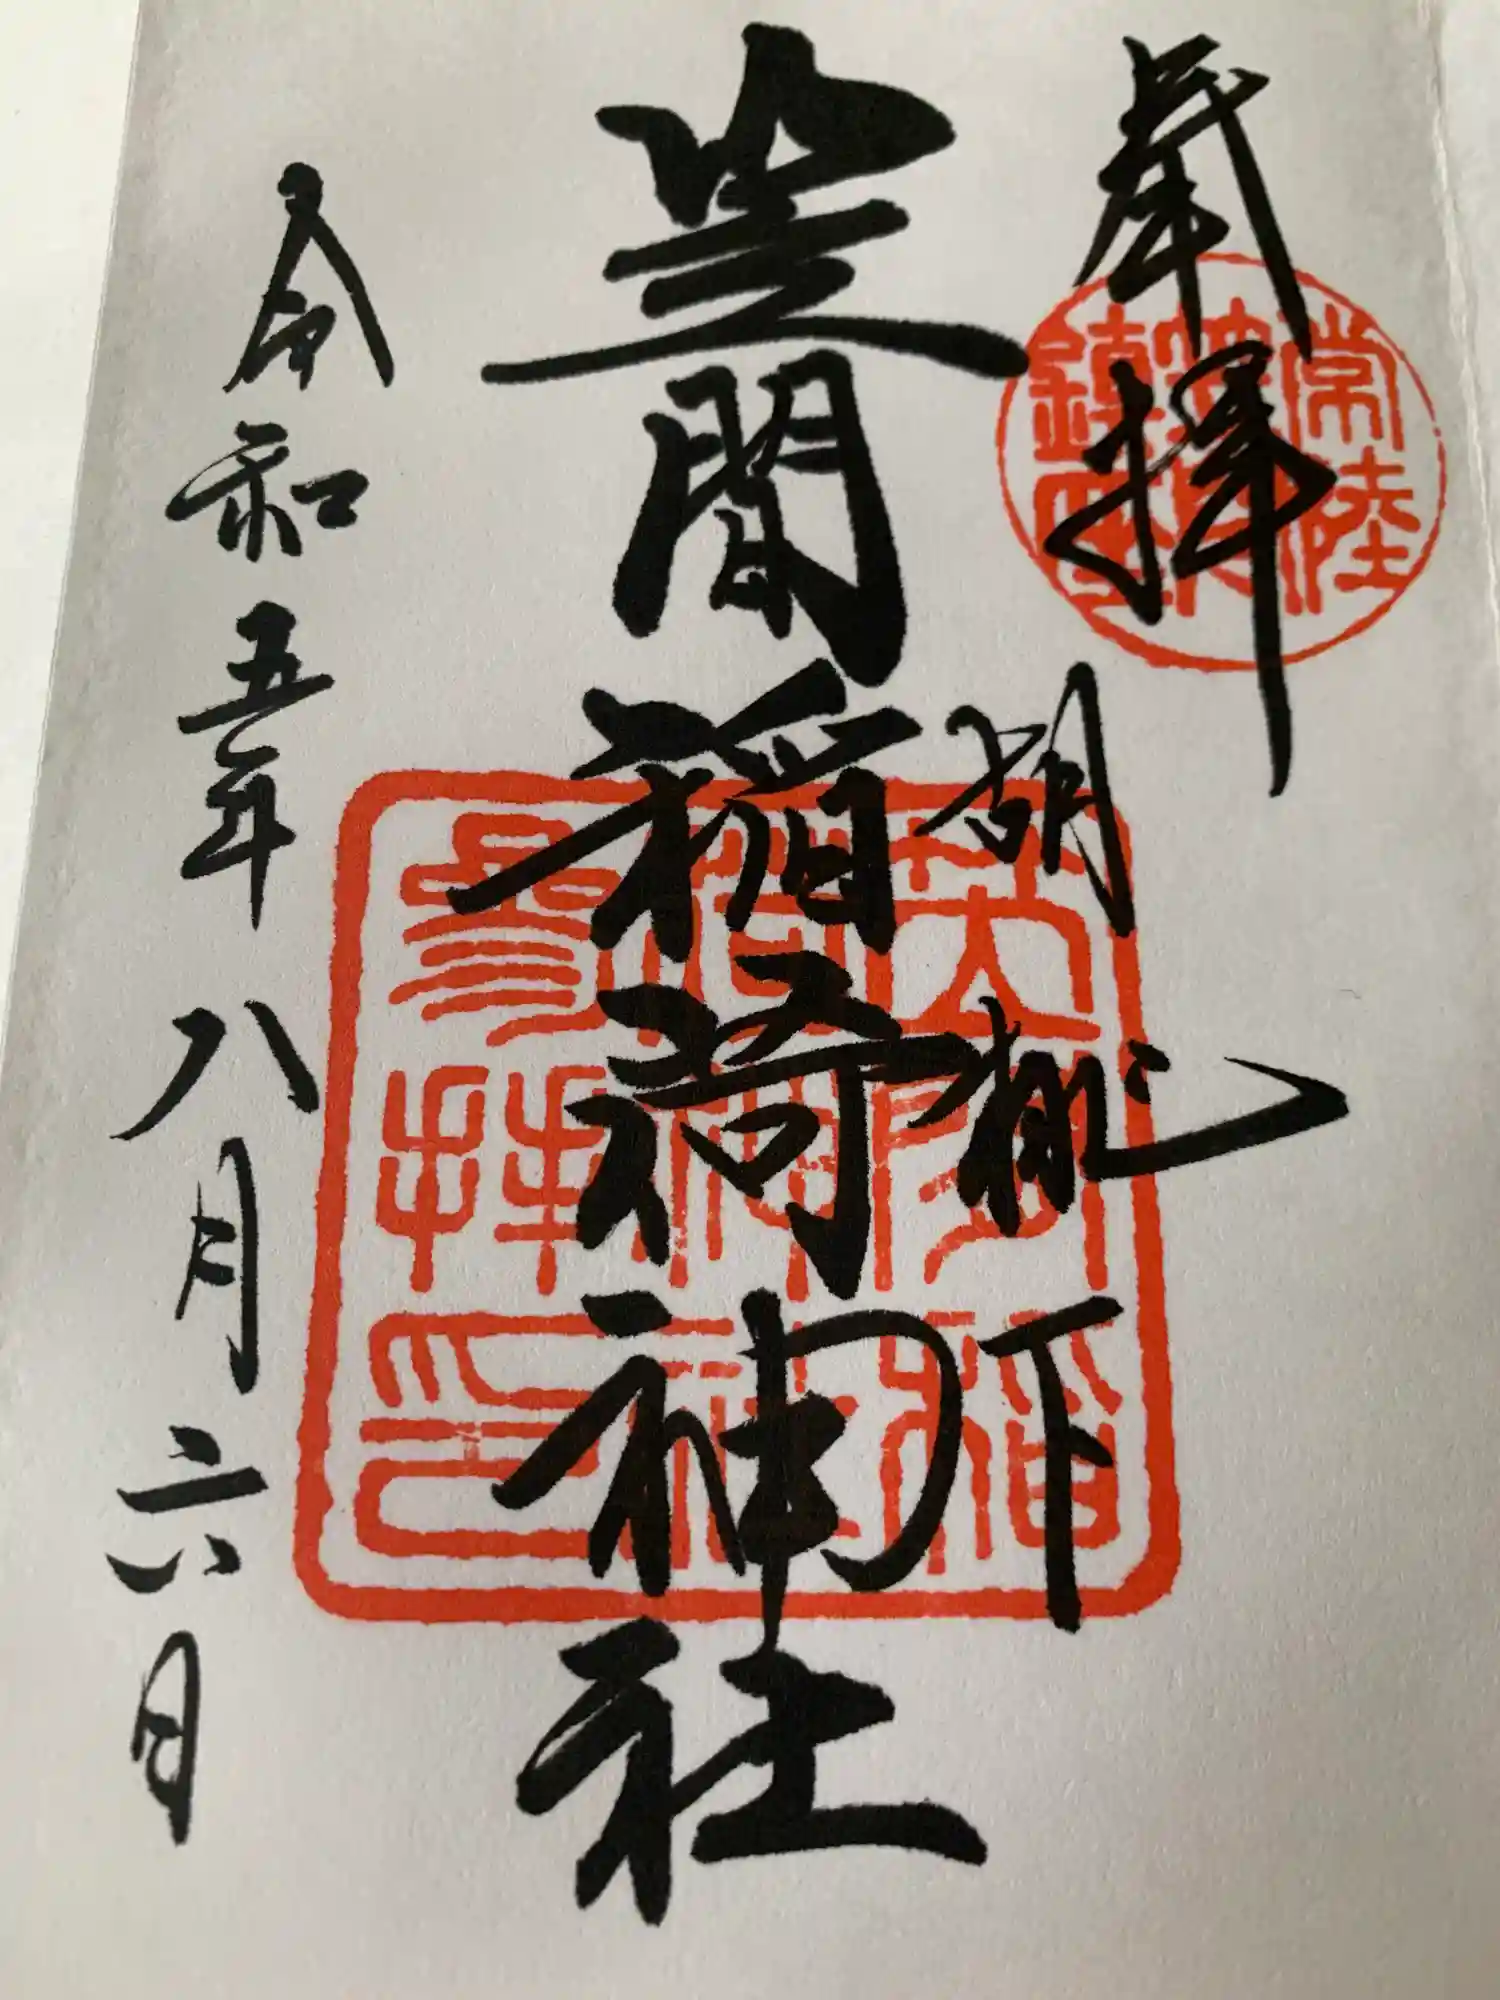 奉拝
常陸
笠間
鎮座
胡桃下
笠間稲荷神社
笠間稲
荷神社
参拝印
令和五年八月六日